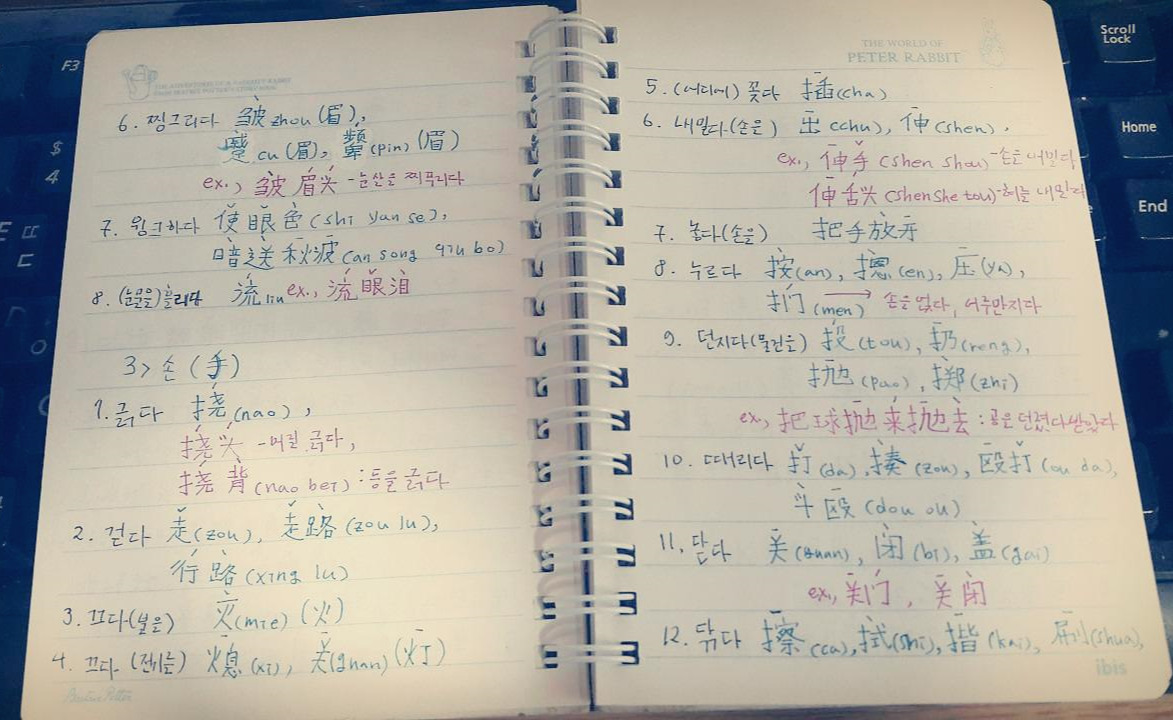 6. 찡그리다 皱 zhou (眉),
蹙 cu (眉), 颦 (pin) (眉)
ex., 皱眉头 - 눈살을 찌푸리다
7. 윙크하다 使眼色 (shi yan se),
暗送秋波 (an song qiu bo)
8. (눈물을) 흘리다 流 liu ex., 流眼泪
3> 손 (手)
1. 긁다 挠 (nao),
挠头 - 머릴 긁다,
挠背 (nao bei) : 등을 긁다
2. 걷다 走 (zou), 走路 (zou lu),
行路 (xing lu)
3. 끄다 (불을) 灭 (mie) (火)
4. 끄다 (전기를) 熄 (xi), 关 (guan) (灯)
Beatrix Potter
THE WORLD OF
PETER RABBIT
5. (어디에) 꽂다 插 (cha)
6. 내밀다 (손을) 出 (chu), 伸 (shen).
ex., 伸手 (shen shou) - 손을 내밀다
伸舌头 (shen she tou) - 혀를 내밀다
7. 놓다 (손을) 把手放开
8. 누르다 按 (an), 摁 (en), 压 (ya),
扪 (men) → 손을 얹다, 어루만지다
9. 던지다 (물건을) 投 (tou), 扔 (reng),
抛 (pao), 掷 (zhi)
ex, 把球抛来抛去 : 공을 던졌다 받았다
10. 때리다 打 (da), 揍 (zou), 殴打 (ou da),
斗殴 (dou ou)
11. 닫다 关 (guan), 闭 (bi), 盖 (gai)
ex, 关门, 关闭
12. 닦다 擦 (ca), 拭 (shi), 揩 (kai), 刷 (shua),
ibis
F3
$
4
Scroll
Lock
Home
End